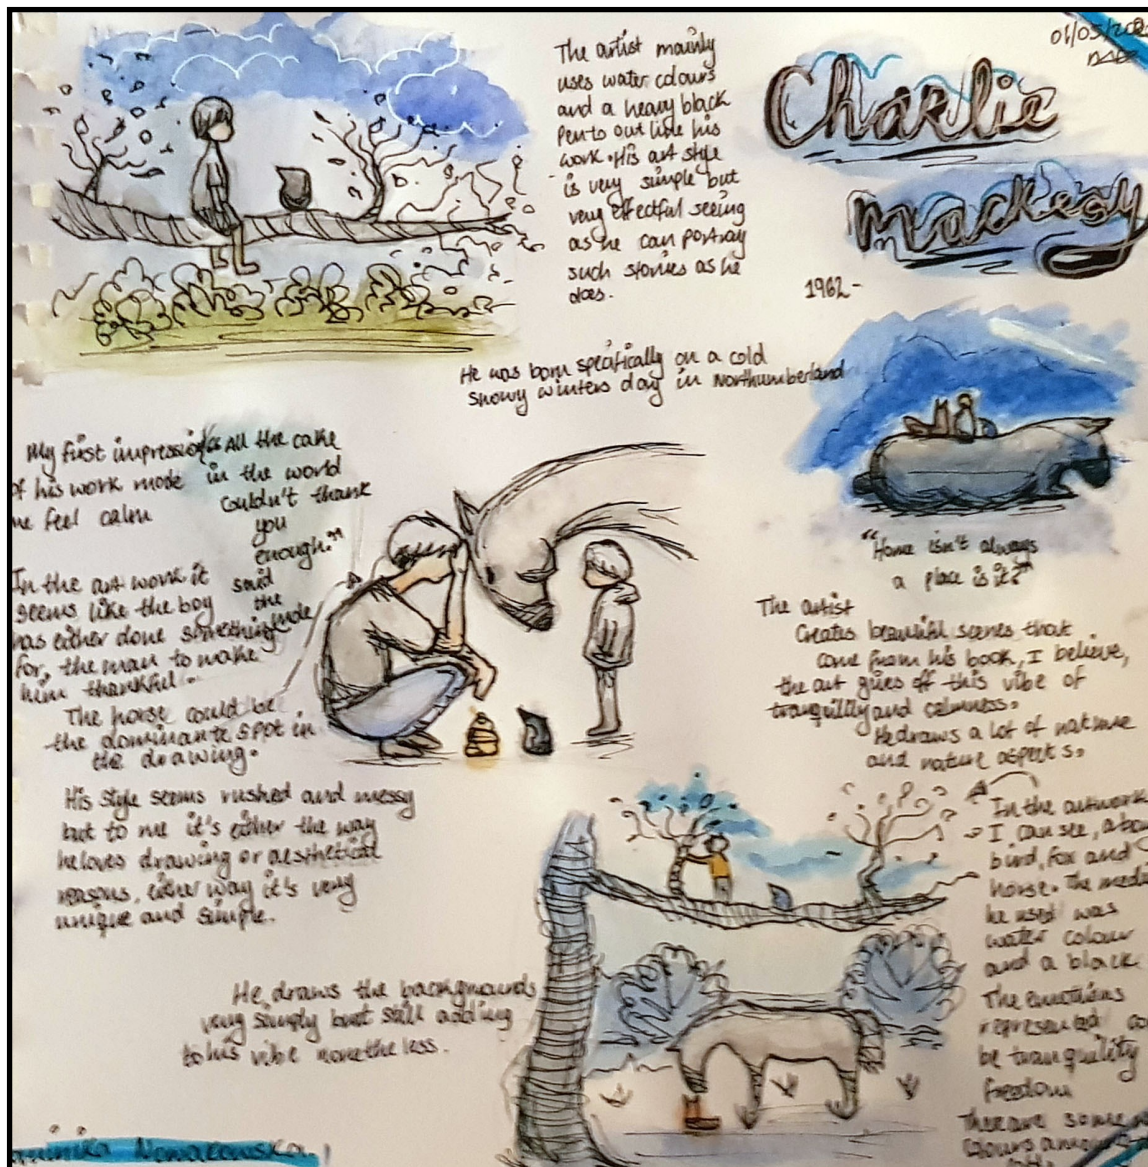 The artist mainly
uses water colours
and a heavy black
Pen to out line his
work. His art style
is very simple but
very effectful seeing
as he can portray
such stories as he
does.
01/05/
Charlie
Mackesy
1962-
He was born specifically on a cold
snowy winters day in Northumberland
My first impression
of his work made
me feel calm
"All the cake
in the world
couldn't thank
you
enough."
said
the
mole
In the art work it
seems like the boy
has either done something
for, the man to make
him thankful.
The horse could be
the dominante spot in
the drawing.
His style seems rushed and messy
but to me it's either the way
he loves drawing or aesthetical
reasons, either way it's very
unique and simple.
He draws the backgrounds
very simply but still adding
to his vibe nonetheless.
"Home isn't always
a place is it?"
The artist
Creates beautiful scenes that
come from his book, I believe,
the art gives off this vibe of
tranquility and calmness.
He draws a lot of nature
and nature aspects.
In the artwork
I can see, a
bird, fox and
horse. The
he used was
water colour
and a black
The emotions
represented
be tranquility
freedom
There are some
colours
Nowakowska